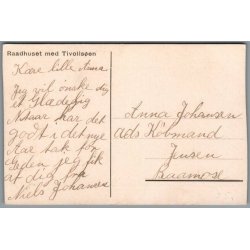 Raadhuset med Tivolisøen
Kære lille Anna
Jeg vil ønske dig
et Glædelig
Nytaar har det
godt i det nye
Aar tak for
jeg fik
af dig fra
Niels Johansen
Anna Johansen
ads Købmand
Jensen